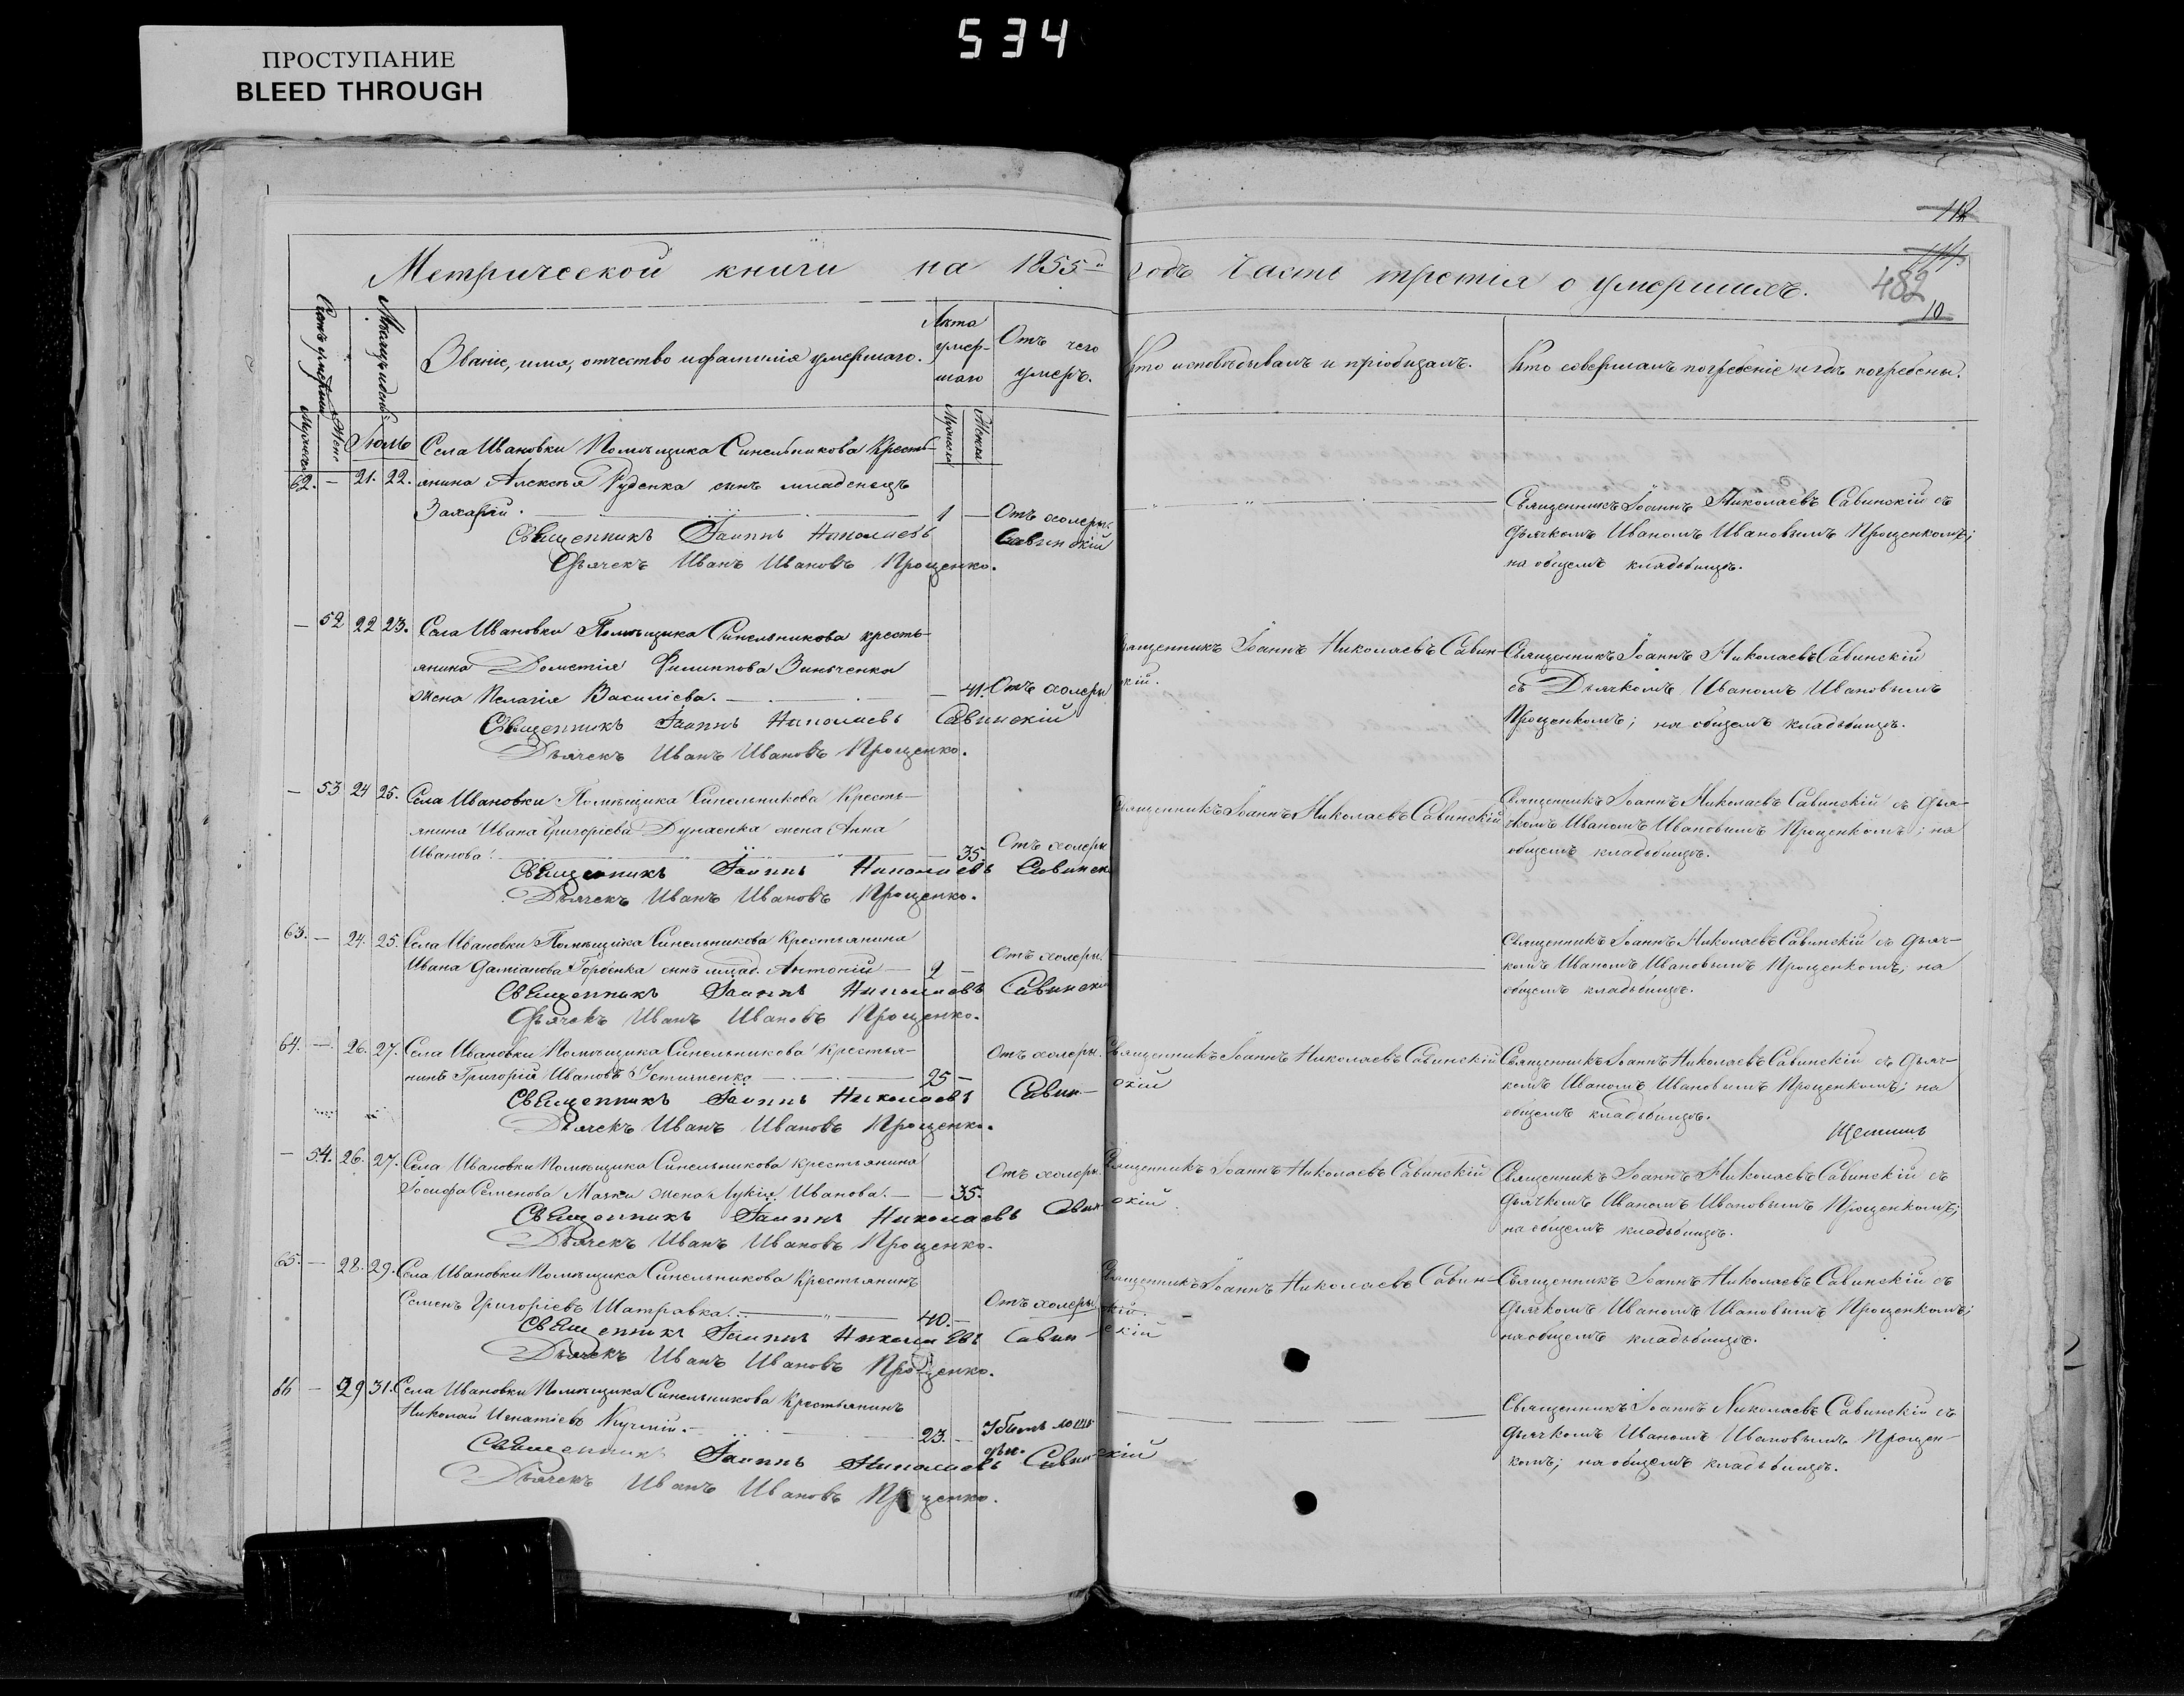 534
ПРОСТУПАНИЕ
BLEED THROUGH
112
482
10
Метрической книги на 1855й годъ часть третія о умершихъ.
Счетъ умершихъ
Мѣсяцъ и день
Званіе, имя, отчество и фамилія умершаго.
Лѣта умер-
шаго
Отъ чего
умеръ.
Кто исповѣдывалъ и пріобщалъ.
Кто совершалъ погребеніе и гдѣ погребены.
Мужеска
Женска
Мужеска
Женска
Іюль
Села Ивановки Помѣщика Синельникова Кресть-
62. — 21. 22. янина Алексѣя Руденка сынъ младенецъ
Захарій. 1 — Отъ холеры.
Священникъ Іоаннъ Николаевъ Савинскій
Дьячекъ Иванъ Ивановъ Прощенко.
Священникъ Іоаннъ Николаевъ Савинскій съ
дьячкомъ Иваномъ Ивановымъ Прощенкомъ;
на общемъ кладьбищѣ.
— 52 22 23. Села Ивановки Помѣщика Синельникова кресть-
янина Дометія Филиппова Зинченка
жена Пелагія Василіева. — 41. Отъ холеры
Священникъ Іоаннъ Николаевъ Савинскій
Дьячекъ Иванъ Ивановъ Прощенко.
Священникъ Іоаннъ Николаевъ Савин-
скій.
Священникъ Іоаннъ Николаевъ Савинскій
съ Дьячкомъ Иваномъ Ивановымъ
Прощенкомъ; на общемъ кладьбищѣ.
— 53 24 25. Села Ивановки Помѣщика Синельникова Кресть-
янина Ивана Григоріева Дунаенка жена Анна
Иванова. — 35. Отъ холеры
Священникъ Іоаннъ Николаевъ Савинск
Дьячекъ Иванъ Ивановъ Прощенко.
Священникъ Іоаннъ Николаевъ Савинскій
Священникъ Іоаннъ Николаевъ Савинскій съ дья-
чкомъ Иваномъ Ивановымъ Прощенкомъ; на
общемъ кладьбищѣ.
63. — 24. 25. Села Ивановки Помѣщика Синельникова Крестьянина
Ивана Даміанова Горбенка сынъ млад. Антоній — 2 — Отъ холеры.
Священникъ Іоаннъ Николаевъ Савинскій
Дьячекъ Иванъ Ивановъ Прощенко.
Священникъ Іоаннъ Николаевъ Савинскій съ дьяч-
комъ Иваномъ Ивановымъ Прощенкомъ; на
общемъ кладьбищѣ.
64. — 26. 27. Села Ивановки Помѣщика Синельникова Крестья-
нинъ Григорій Ивановъ 25 — Отъ холеры.
Священникъ Іоаннъ Николаевъ Савин-скій
Дьячекъ Иванъ Ивановъ Прощенко.
Священникъ Іоаннъ Николаевъ Савинскій
Священникъ Іоаннъ Николаевъ Савинскій съ дьяч-
комъ Иваномъ Ивановымъ Прощенкомъ; на
общемъ кладьбищѣ.
— 54. 26. 27. Села Ивановки Помѣщика Синельникова крестьянина
Іосифа Семенова Мачки жена Лукія Иванова. — 35. Отъ холеры.
Священникъ Іоаннъ Николаевъ Савин-скій
Дьячекъ Иванъ Ивановъ Прощенко.
Священникъ Іоаннъ Николаевъ Савинскій
Священникъ Іоаннъ Николаевъ Савинскій съ
дьячкомъ Иваномъ Ивановымъ Прощенкомъ;
на общемъ кладьбищѣ.
65. — 28. 29. Села Ивановки Помѣщика Синельникова Крестьянинъ
Семенъ Григоріевъ Шатравка. 40. — Отъ холеры
Священникъ Іоаннъ Николаевъ Савин-скій
Дьячекъ Иванъ Ивановъ Прощенко.
Священникъ Іоаннъ Николаевъ Савин-
скій.
Священникъ Іоаннъ Николаевъ Савинскій съ
дьячкомъ Иваномъ Ивановымъ Прощенкомъ;
на общемъ кладьбищѣ.
66 — 29 31. Села Ивановки Помѣщика Синельникова Крестьянинъ
Николай Игнатіевъ Кучмій. 23. — Убитъ лоша
дьми.
Священникъ Іоаннъ Николаевъ Савинскій
Дьячекъ Иванъ Ивановъ Прощенко.
Священникъ Іоаннъ Николаевъ Савинскій съ
дьячкомъ Иваномъ Ивановымъ Прощен-
комъ; на общемъ кладьбищѣ.